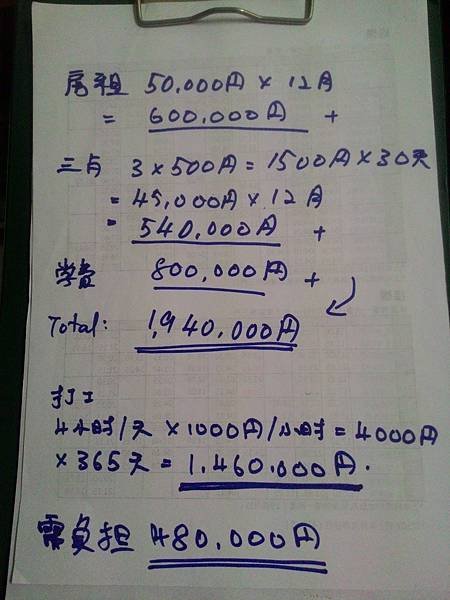 房租 50,000円 × 12月
= 600,000円 +
三点 3×500円 = 1500円×30天
= 45,000円 × 12月
= 540,000円 +
学费 800,000円 +
Total: 1,940,000円
打工
4小时/天 ×1000円/小时 = 4000円
×365天 = 1,460,000円.
需负担 480,000円